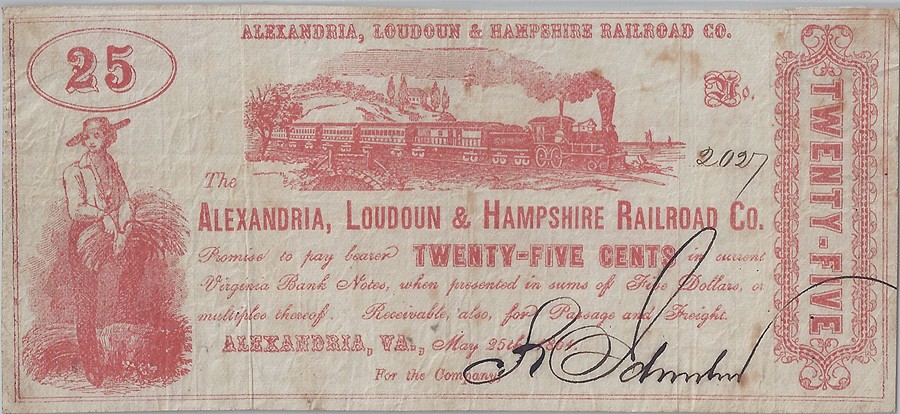 ALEXANDRIA, LOUDOUN & HAMPSHIRE RAILROAD CO.
25
No.
2027
The
ALEXANDRIA, LOUDOUN & HAMPSHIRE RAILROAD CO.
Promise to pay bearer TWENTY-FIVE CENTS in current
Virginia Bank Notes, when presented in sums of Five Dollars, or
multiples thereof. Receivable, also, for Passage and Freight.
ALEXANDRIA, VA., May 25th, 1861.
For the Company,
TWENTY-FIVE